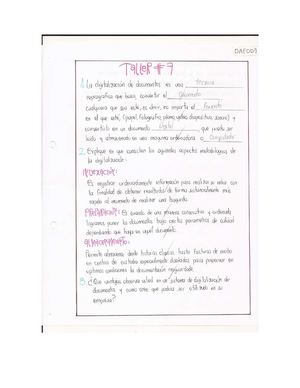 DAE009
TALLER # 7
1. La digitalización de documentos es una técnica
reprográfica que busca, convertir el documento
cualquiera que sea este, es decir, no importa el formato
en el que esté, (papel, fotografía, planos, vídeos, diapositivas)
y convertirlo en un documento digital que puede ser
leído y almacenado en una máquina ordenadora o computador
2. Explique en que consisten los siguientes aspectos metodológicos de
la digitalización:
INDEXACIÓN:
Es registrar ordenadamente información para realizar su índice con
la finalidad de obtener resultados de forma sustancialmente más
rápida al momento de realizar una búsqueda
Es cuando de una manera consecutiva y ordenada
logramos poner la documentos, bajo ciertos parámetros de calidad
dependiendo que haya en aquel documento.
ALMACENAMIENTO:
Permite almacenar, desde historias clínicas hasta facturas de modo
en centros de custodia especialmente diseñados para preservar en
óptimas condiciones la documentación resguardada.
3. ¿Que ventajas observa usted en un sistema de digitalización de
documentos y como cree que podría ser utilizado en su
empresa?